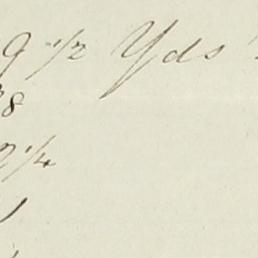 9 1/2 Yds
8
2 1/4